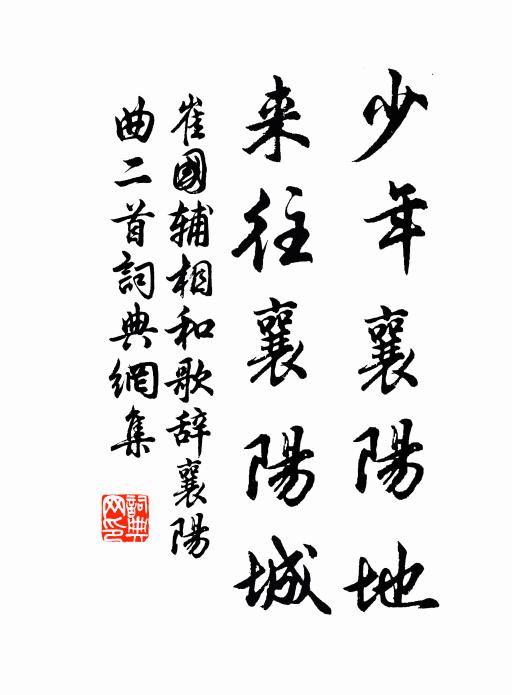 少年襄陽地
来往襄陽城
崔國辅相和歌辞襄陽
曲二首詞典網集
詞典
网印